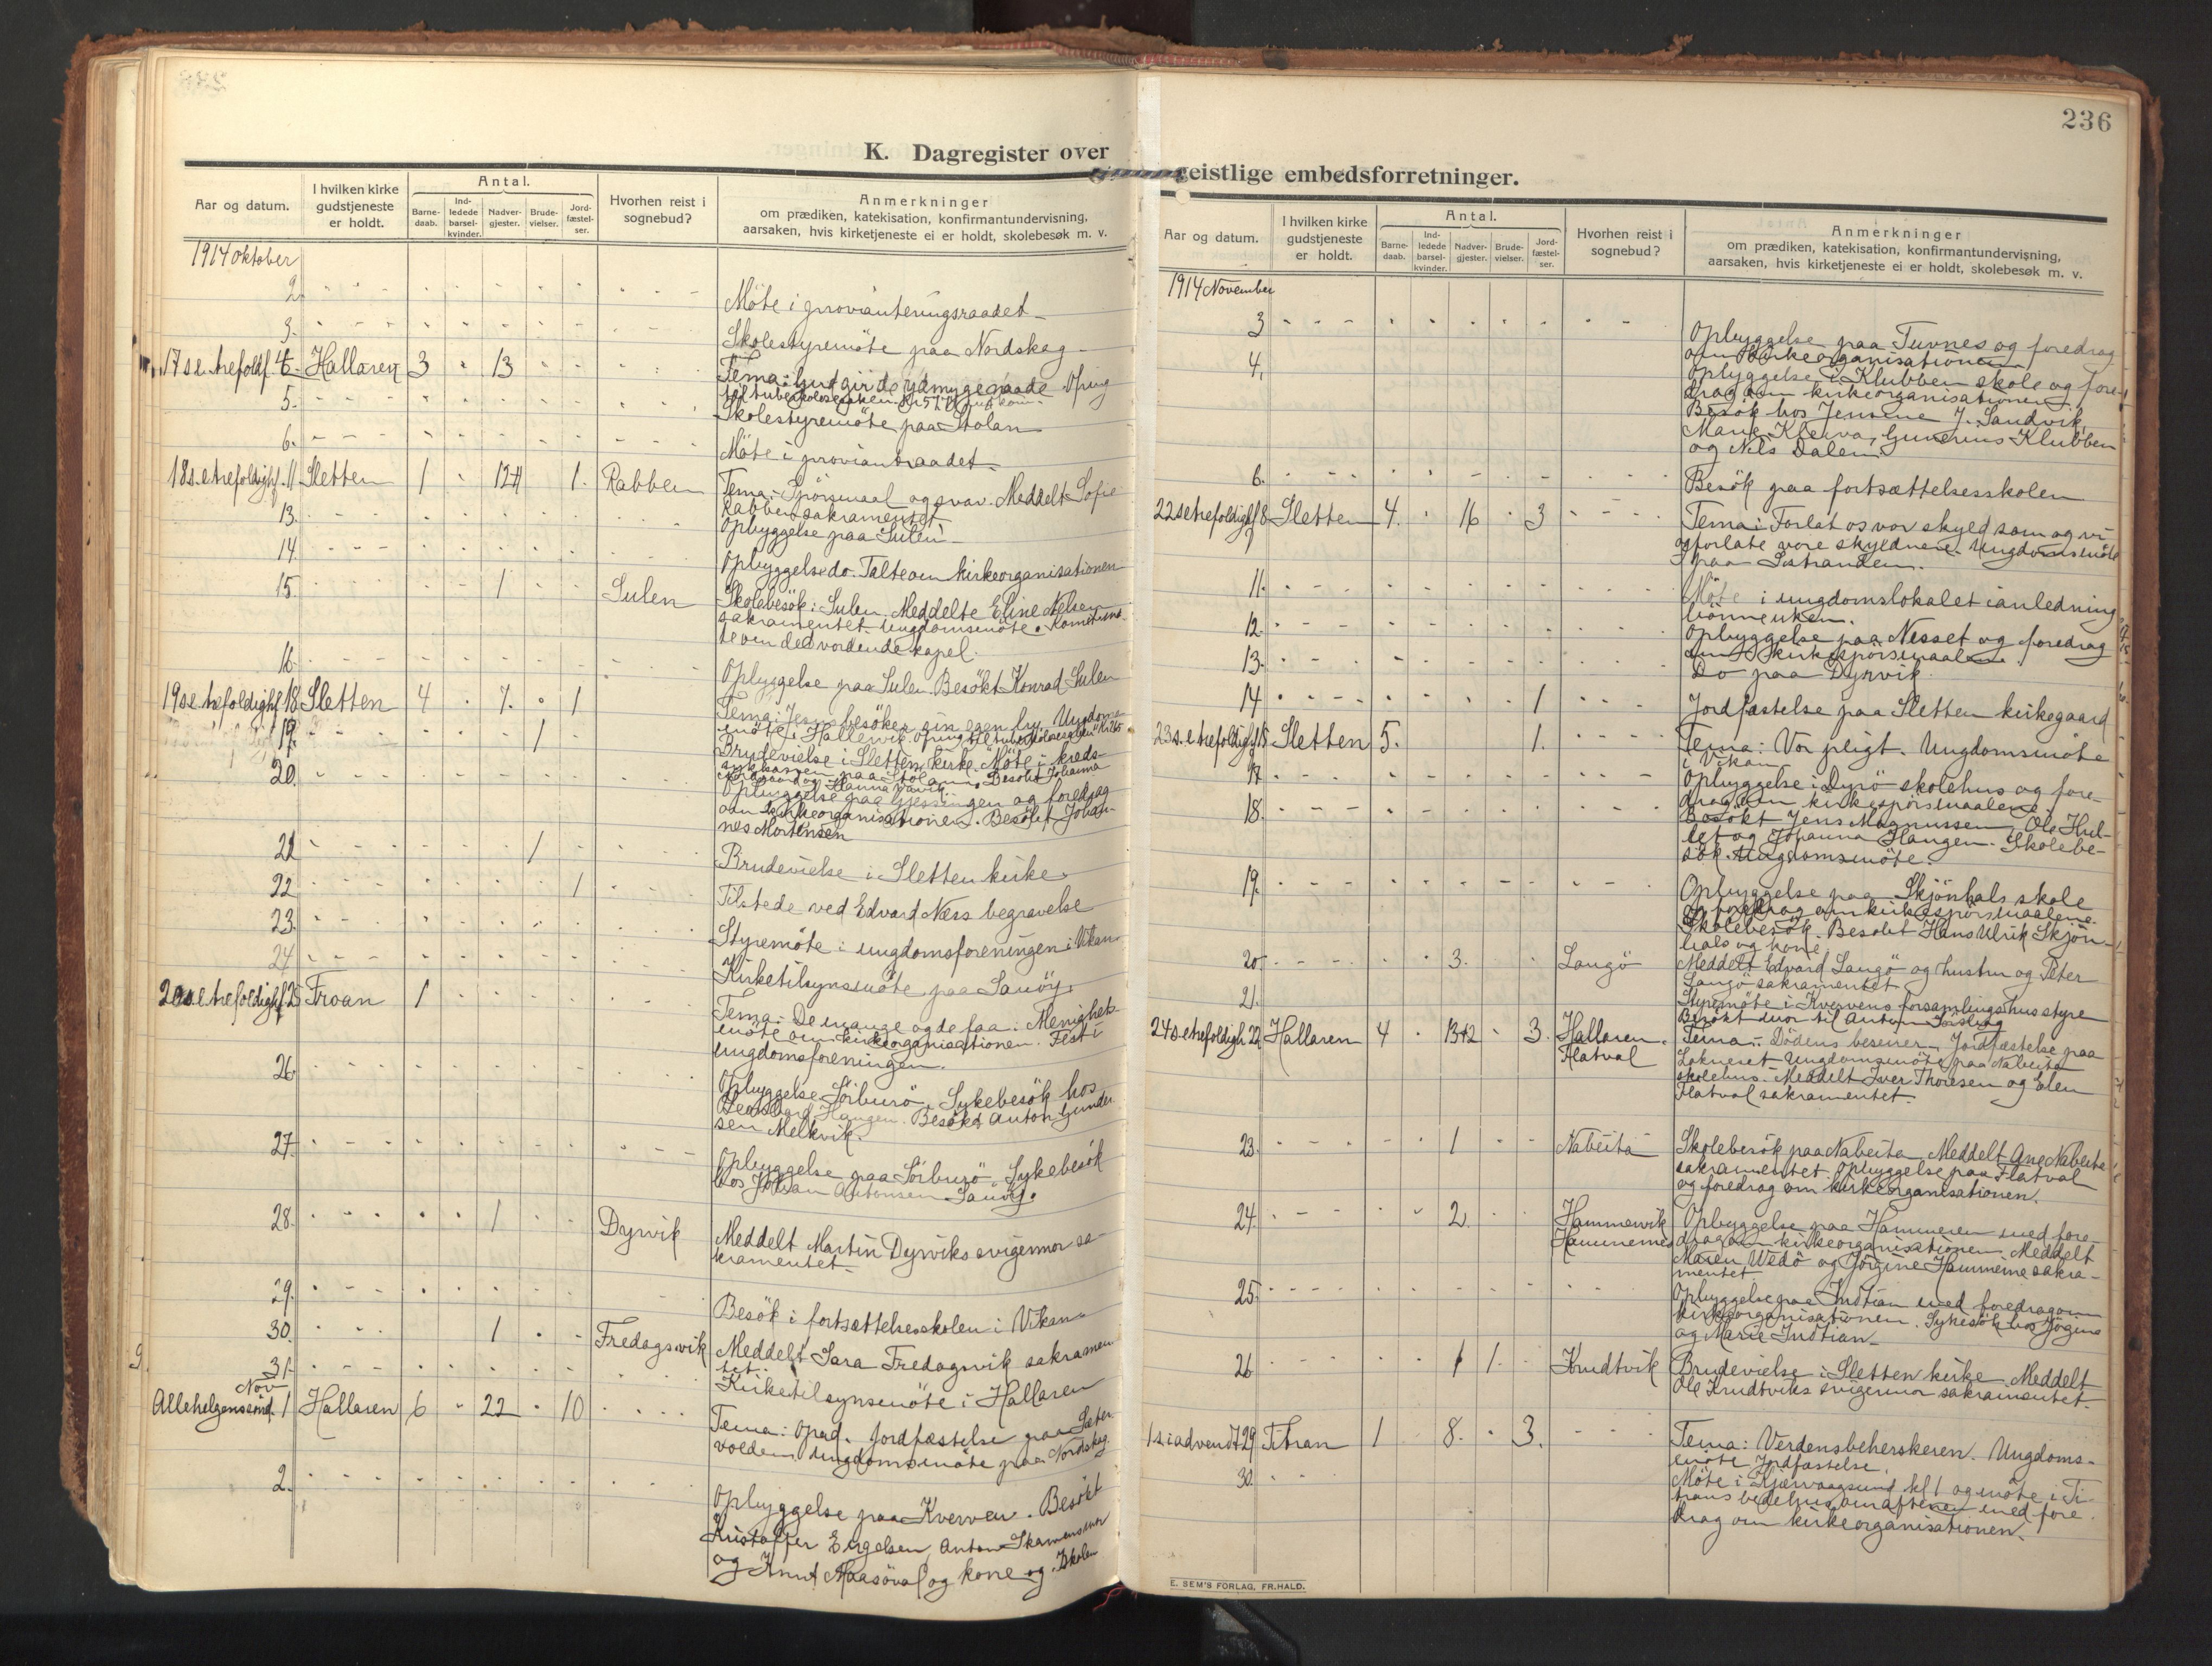 236
K. Dagregister over
geistlige embedsforretninger.
Aar og datum.
I hvilken kirke gudstjeneste er holdt.
Antal.
Barnedaab.
Indledede barselkvinder.
Nadvergjester.
Brudevielser.
Jordfæstelser.
Hvorhen reist i sognebud?
Anmerkninger
om prædiken, katekisation, konfirmantundervisning,
aarsaken, hvis kirketjeneste ei er holdt, skolebesøk m. v.
1914 oktober
2. Möte i provianteringsraadet
3. Skolestyremöte paa Nordskag
17 s. e. trefoldf. 4. Hallaren 3 13 Tema: Gud gir de ydmyge naade
5. Skolestyremöte paa Stolan
6. Möte i proviantraadet
18 s. e. trefoldighf. 11 Sletten 1 1. Rabben Tema: Spörsmaal og svar. Meddelt Sofie
Rabben sakramentet
13. Opbyggelse paa Sulen
14. Opbyggelse do. Talte om kirkeorganisationen
15. 1 Sulen Skolebesök i Sulen. Meddelte Eline Nelsen
sakramentet. Ungdomsmöte. Komitemö-
te om det vordende kapel.
16. Opbyggelse paa Sulen. Besökt Konrad Sulen
19 s. e. trefoldighf. 18. Sletten 4 7. 1 Tema: Jesus besöker sin egen by. Ungdoms-
möte i Hallervik
19. 1 Brudevielse i Sletten kirke. Möte i kreds-
sykekassen paa Stolan. Besökt Johanna
20. Opbyggelse paa Gjessingen og foredrag
om kirkeorganisationen. Besökt Johan-
nes Mortensen
21 1 Brudevielse i Sletten kirke
22 1 Tilstede ved Edvard Næss begravelse
23. Styremöte i ungdomsforeningen i Vikan
24 Kirketilsynsmöte paa Sauöy.
20 s. e. trefoldighf. 25 Froan 1 Tema: De mange og de faa. Menighets-
möte om kirkeorganisationen. Fest i
ungdomsforeningen.
26 Opbyggelse Sörburö. Sykebesök hos
Haugen. Besökt Anton Gunder
sen Melkvik.
27 Opbyggelse paa Sörburö. Sykebesök
hos Johan Antonsen Sauöy.
28. 1 Dyrvik Meddelt Martin Dyrviks svigermor sa-
kramentet
29. Besök i fortsættelsesskolen i Vikan
30. 1 Fredagsvik Meddelt Sara Fredagsvik sakramen
tet.
31. Kirketilsynsmöte i Hallaren
Nov
Allehelgensönd. 1 Hallaren 6 22 10 Tema: Opad. Jordfæstelse paa Sæter-
volden. Ungdomsmöte paa Nordskag.
2. Opbyggelse paa Kverven. Besökt
Kristoffer Engelsen, Anton Skammensmor
og Knut Maasöval og kone og Skolen
Aar og datum.
I hvilken kirke gudstjeneste er holdt.
Antal.
Barnedaab.
Indledede barselkvinder.
Nadvergjester.
Brudevielser.
Jordfæstelser.
Hvorhen reist i sognebud?
Anmerkninger
om prædiken, katekisation, konfirmantundervisning,
aarsaken, hvis kirketjeneste ei er holdt, skolebesøk m. v.
1914 November
3 Opbyggelse paa Tuvnes og foredrag
om kirkeorganisationen
4. Opbyggelse i Klubben skole og fore-
drag om kirkeorganisationen.
Besök hos Jensine J. Sandvik,
Marie Kleiva, Gunerius Klubben
og Nils Dalen.
6. Besök paa fortsættelsesskolen
22 s e trefoldighf 8 Sletten 4. 16 3 Tema: Forlat os vor skyld som og vi
forlate vore skyldnere. Ungdomsmöte
paa Sistranden.
11. Möte i ungdomslokalet i anledning
bönneuken.
12. Opbyggelse paa Nesset og foredrag
om kirkespörsmaalene
13. Do paa Dyrvik
14 1 Jordfæstelse paa Sletten kirkegaard
23 s. e trefoldighf 15 Sletten 5. 1. Tema: Vor pligt. Ungdomsmöte
i Vikan
17 Opbyggelse i Dyrö skolehus og fore-
drag om kirkespörsmaalene.
18. Besökt Jens Magnussen, Ole Hul-
let og Johanna Haugen. Skolebe-
sök. Ungdomsmöte.
19. Opbyggelse paa Skjönhals skole
og foredrag om kirkespörsmaalene.
Skolebesök. Besökt Hans Ulrik Skjön-
hals og kone
20. 3. Langö Meddelt Edvard Langö og hustru og Peter
Langö sakramentet
21. Styremöte i Kvervens forsamlingshusstyre
Besökt mor til Anton
24 s. e trefoldigh. 22 Hallaren 4 13+2 3. Hallaren. Flatval Tema: Dödens beseirer. Jordfæstelse paa
Ungdomsmöte paa Nabeita
skolehus. Meddelt Iver Thoresen og Elen
Flatval sakramentet.
23. 1 Nabeita Skolebesök paa Nabeita. Meddelt Ane Nabeita
sakramentet. Opbyggelse paa Flatval
og foredrag om kirkeorganisationen.
24. 2. Hammervik Hammernes Opbyggelse paa Hammeren med fore-
drag om kirkeorganisationen. Meddelt
Maren Wedö og Jörgine Hammerne sakra-
mentet
25. Opbyggelse paa Inntian med foredrag om
kirkeorganisationen. Sykesök hos Jörgine
og Marie Inntian
26 1 1. Knudtvik Brudevielse i Sletten kirke. Meddelt
Ole Knudtviks svigermor sakramentet.
1 s. i advendt 29 Titran 1 8. 3. Tema: Verdensbeherskeren. Ungdoms-
möte Jordfæstelse.
30. Möte i Kjærvaagsund kl 1 og möte i Ti-
trans bedehus om aftenen med fore-
drag om kirkeorganisationen.
E. SEM'S FORLAG, FR.HALD.